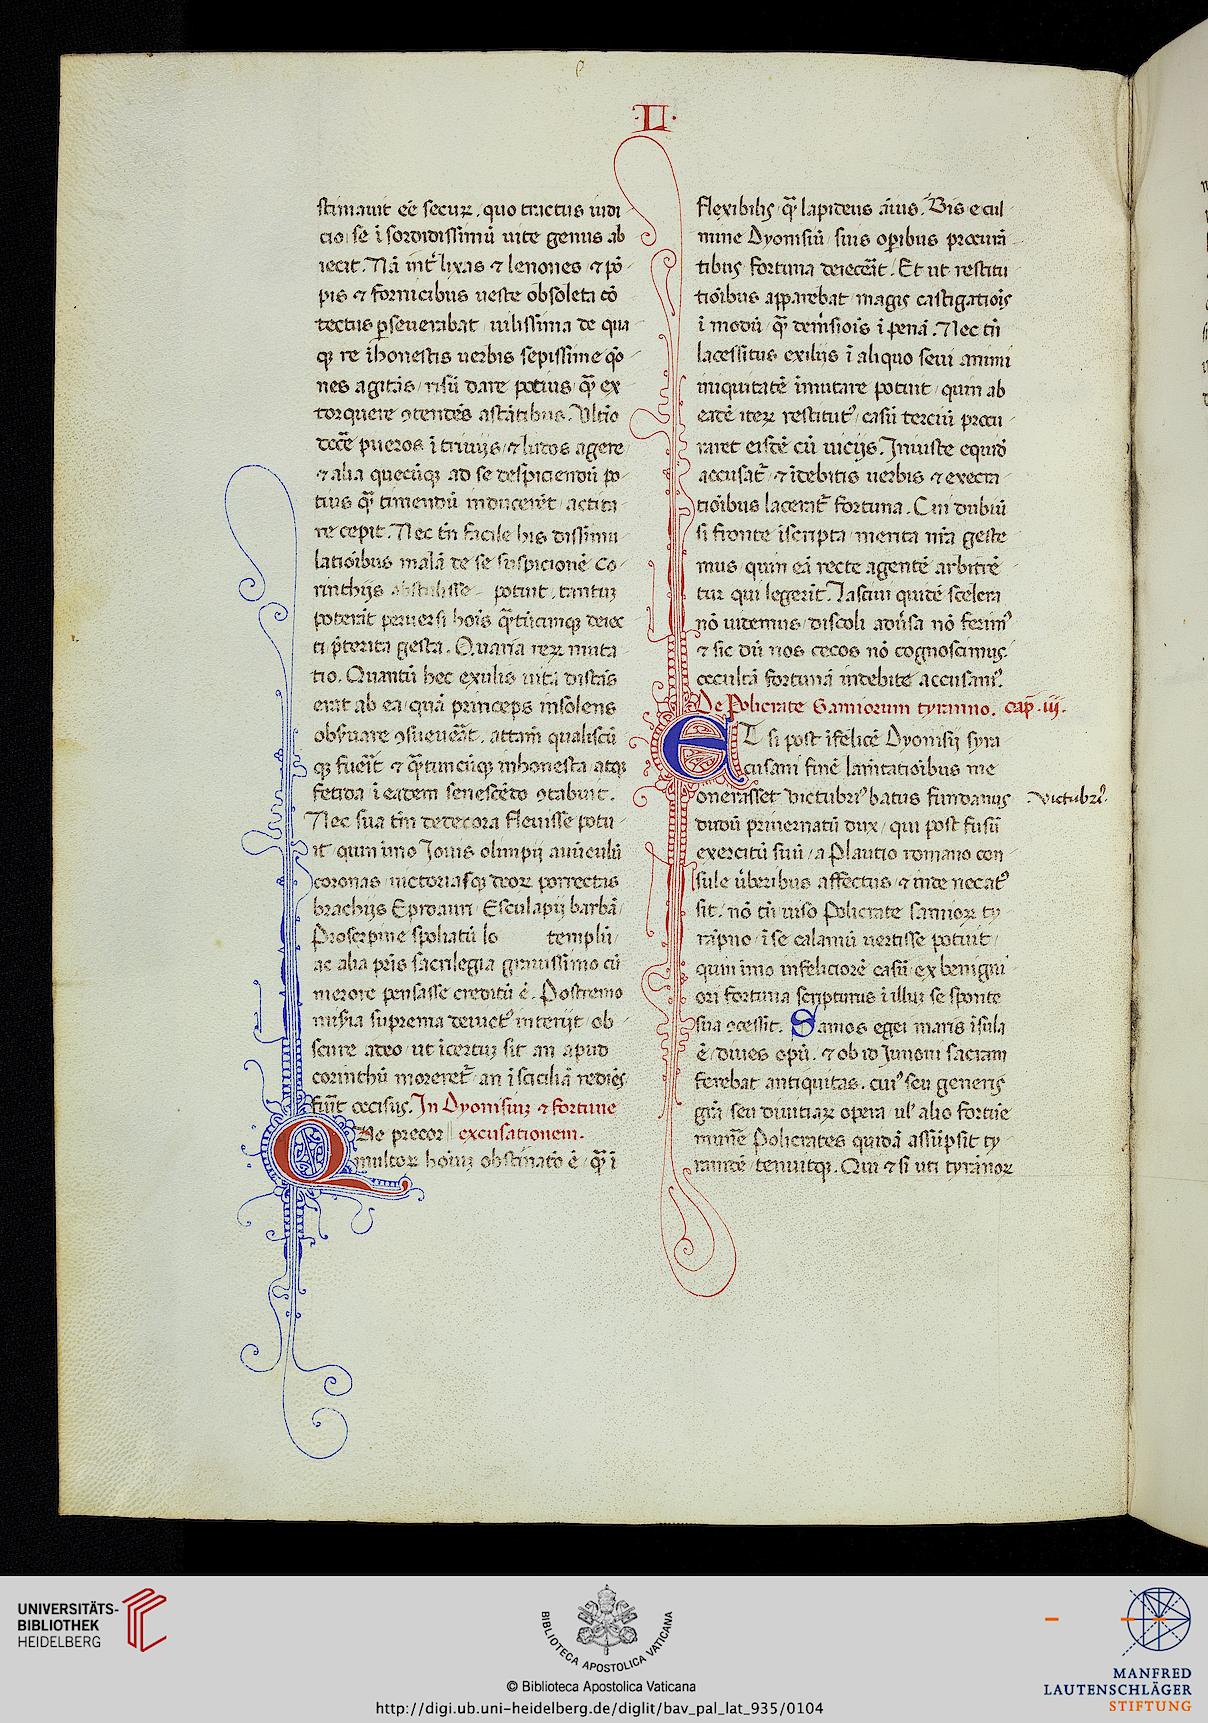 ·II·
stimauit eē secuꝝ. quo tractus iudi
cio se ī sordidissimū uite genus ab
iecit. Nā int̄ lixas ⁊ lenones ⁊ pō
pis ⁊ fornicibus ueste obsoleta cō
tectus ꝑseuerabat uilissima de qua
qꝫ re īhonestis uerbis sepissime q̄o
nes agitās risū dare potius q̄ꝫ ex
torquere ꝯtendēs astātibus. Ultīo
docē pueros ī triuijs ⁊ ludos agere
⁊ alia quecūqꝫ ad se despiciendū po
tius q̄ꝫ timendū inducerēt actita
re cepit. Nec tn̄ facile his dissimu
latiōibus malā de se suspicionē Co
rinthijs abstulisse potuit. tantuꝫ
poterāt peruersi hoīs q̄ꝫtūcunqꝫ deiec
ti p̄terita gesta. Quaria reꝝ muta
tio. Quantū hec exulis uita distās
erat ab ea quā princeps insolens
obꝰuare ꝯsueuerāt. attam̄ qualiscū
qꝫ fuerīt ⁊ q̄ꝫtuncūqꝫ inhonesta atqꝫ
fetida ī eadem senescēdo ꝯtabuit.
Nec sua tn̄ dedecora fleuisse potu
it quin īmo Jouis olimpij auūculū
coronas uictoriasqꝫ deoꝝ porrectas
brachijs Epidauri Esculapij barbā
Proserpine spoliatū lo templū
ac alia pr̄is sacrilegia grauissimo cū
merore pensasse creditū ē. Postremo
miseria suprema deuictꝰ interijt ob
scure adeo ut īcertuꝫ sit an apud
corinthū morereť an ī siciliā rediēs
fuerīt occisus. In Dyonisiuꝫ ⁊ fortune
QUe precor excusationem.
multoꝝ hoīuꝫ obstinatō ē q̄ꝫ ī
flexibilis q̄ꝫ lapideus aīus. Bis e cul
mine Dyonisiū suis operibus procurā
tibus fortuna deiecerāt. Et ut restitu
tiōibus apparebat magis castigatiōis
ī modū q̄ꝫ demīsiois ī penā. Nec tn̄
lacessitus exilijs ī aliquo seui animi
iniquitatē īmutare potuit quin ab
eadē iteꝝ restitutꝰ casū terciū procu
raret eisdē cū uicijs. Iniuste equidē
accusať ⁊ īdebitis uerbis ⁊ execra
tiōibus lacerať fortuna. Cui dubiū
si fronte īscripta merita nr̄a geste
mus quin eā recte agentē arbitrē
tur qui legerīt. Nascim quidē scelera
nō uidemus discoli aduersa nō ferimꝰ
⁊ sic dū nos cecos nō cognoscimus
occultā fortunā indebite accusamꝰ.
De Policrate Samiorum tyranno. cap̄. iij.
ET si post īfelicē Dyonisij syra
cusani finē lamētatiōibus me
onerasset Victubriꝰ batus fundanus
Victubri9.
dudū priuernatū dux qui post fusū
exercitū suū a Plautio romano con
sule ūberibus affectus ⁊ inde necatꝰ
sit. nō tn̄ uiso Policrate samioꝝ ty
rāpno ī se calamū uertisse potuit
quin īmo infeliciorē casū ex benigni
ori fortuna scripturus ī illuꝫ se sponte
sua ꝯcessit. Samos egei maris īsula
ē diues opū. ⁊ ob id Junoni sacram
ferebat antiquitas. cuiꝰ seu generis
grā seu diuitiaꝝ opera ul' alio fortūe
munē Policrates quidā assūpsit ty
rānidē tenuitqꝫ. Qui ⁊ si uti tyrānoꝝ
UNIVERSITÄTS-
BIBLIOTHEK
HEIDELBERG
BIBLIOTECA APOSTOLICA VATICANA
© Biblioteca Apostolica Vaticana
http://digi.ub.uni-heidelberg.de/diglit/bav_pal_lat_935/0104
MANFRED
LAUTENSCHLÄGER
STIFTUNG